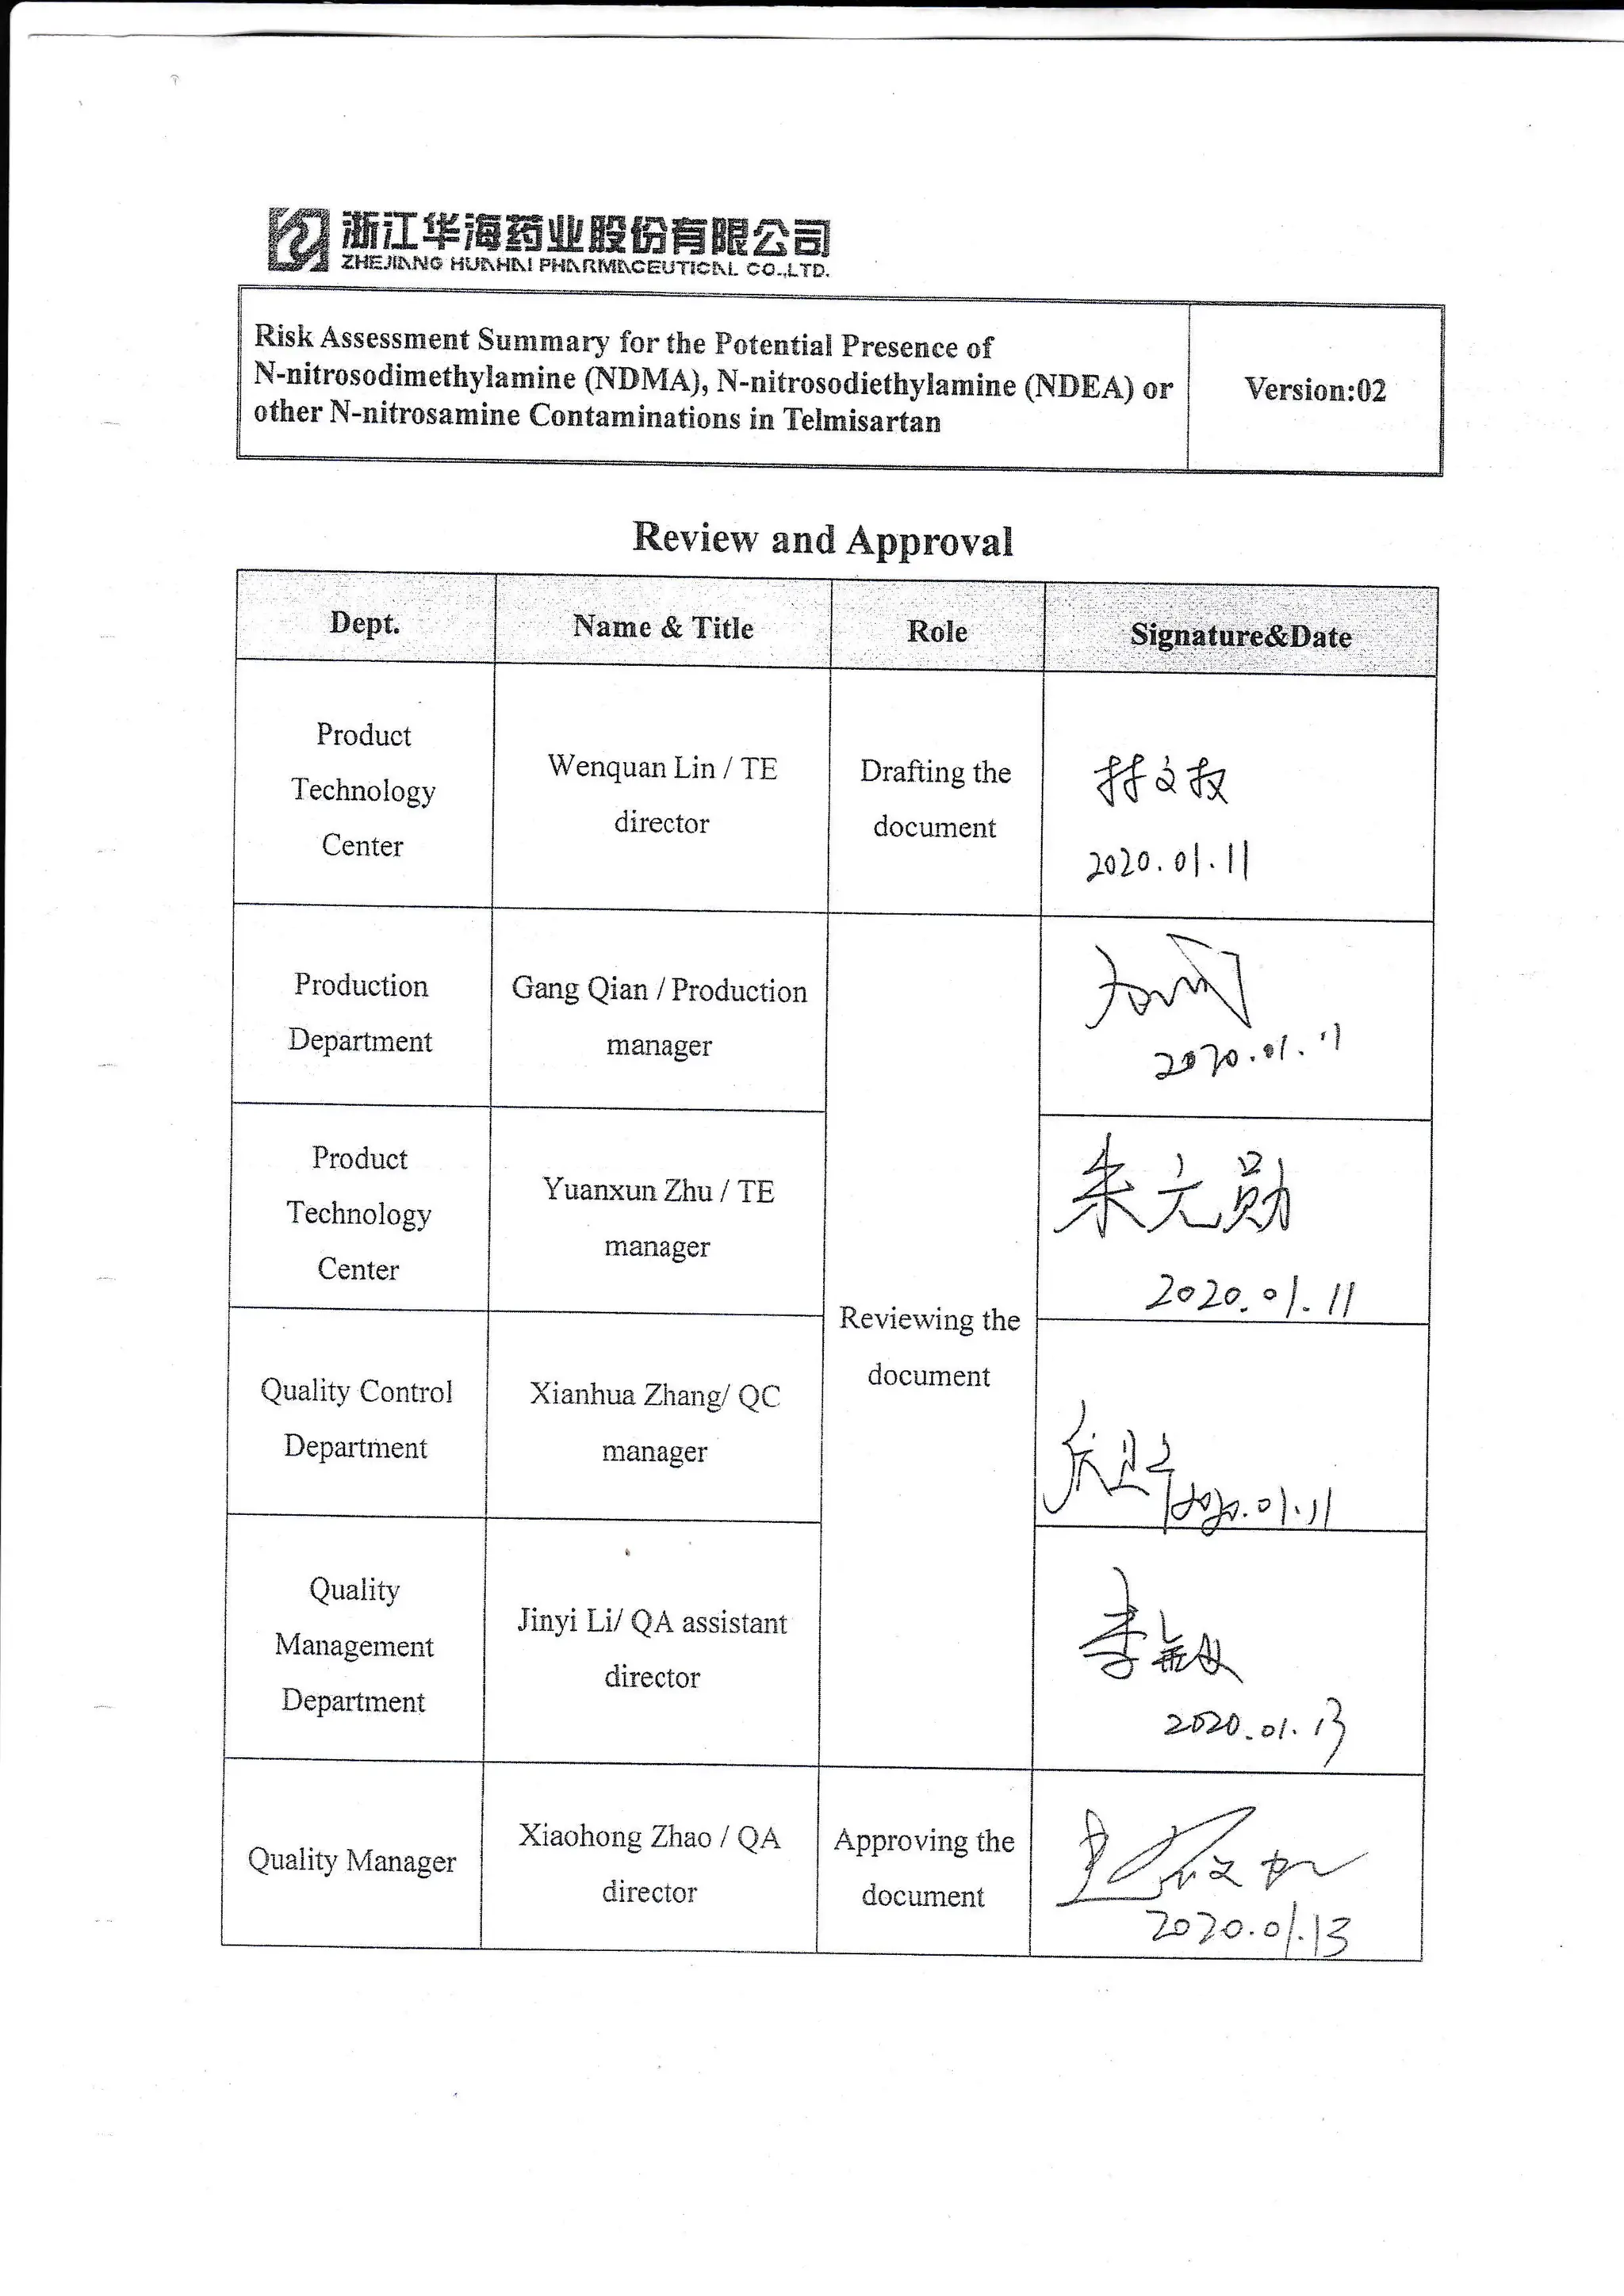 浙江华海药业股份有限公司
ZHEJIANG HUAHAI PHARMACEUTICAL CO.,LTD.
Risk Assessment Summary for the Potential Presence of
N-nitrosodimethylamine (NDMA), N-nitrosodiethylamine (NDEA) or
other N-nitrosamine Contaminations in Telmisartan
Version:02
Review and Approval
Dept.
Name & Title
Role
Signature&Date
Product
Technology
Center
Wenquan Lin / TE
director
Drafting the
document
林文权
2020.01.11
Production
Department
Gang Qian / Production
manager
2020.01.11
Product
Technology
Center
Yuanxun Zhu / TE
manager
朱元勋
2020.01.11
Reviewing the
document
Quality Control
Department
Xianhua Zhang/ QC
manager
2020.01.11
Quality
Management
Department
Jinyi Li/ QA assistant
director
2020.01.13
Quality Manager
Xiaohong Zhao / QA
director
Approving the
document
2020.01.13